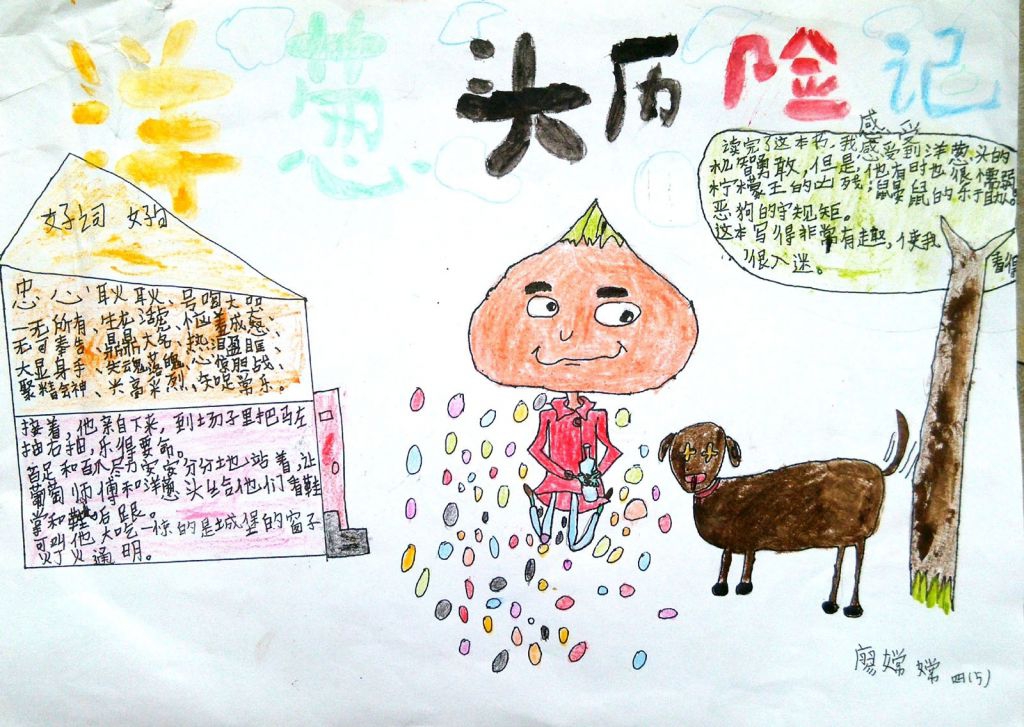 洋葱头历险记
感受
读完了这本书，我感受到洋葱头的
机智勇敢，但是，他有时也很懦弱
柠檬王的凶残；鼹鼠的乐于助人。
恶狗的守规矩。
这本写得非常有趣，使我
看得
很入迷。
好词 好句
忠心耿耿、号啕大哭
一无所有、生龙活虎、忧愁成怒、
无可奉告、鼎鼎大名、热泪盈眶、
大显身手、失魂落魄、心惊胆战、
聚精会神、兴高采烈、知足常乐。
接着，他亲自下来，到场子里把马左
抽右抽，乐得要命。
百足和百爪尽力安安分分地站着，让
葡萄师傅和洋葱头给他们看鞋
掌和鞋后跟。
可叫他大吃一惊的是城堡的窗子
灯火通明。
廖嫦嫦 四(5)